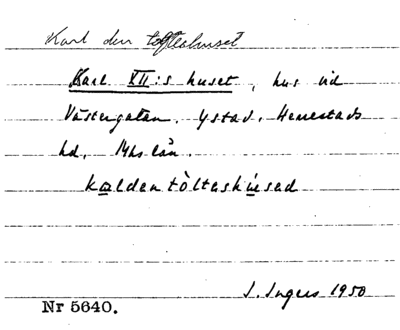 Karl den tolftehuset
Karl XII:s huset, hus vid
Västergatan. Ystad, Herrestads
hd, Mhs län.
kaldentòltashúsad
I. Ingers 1950
Nr 5640.